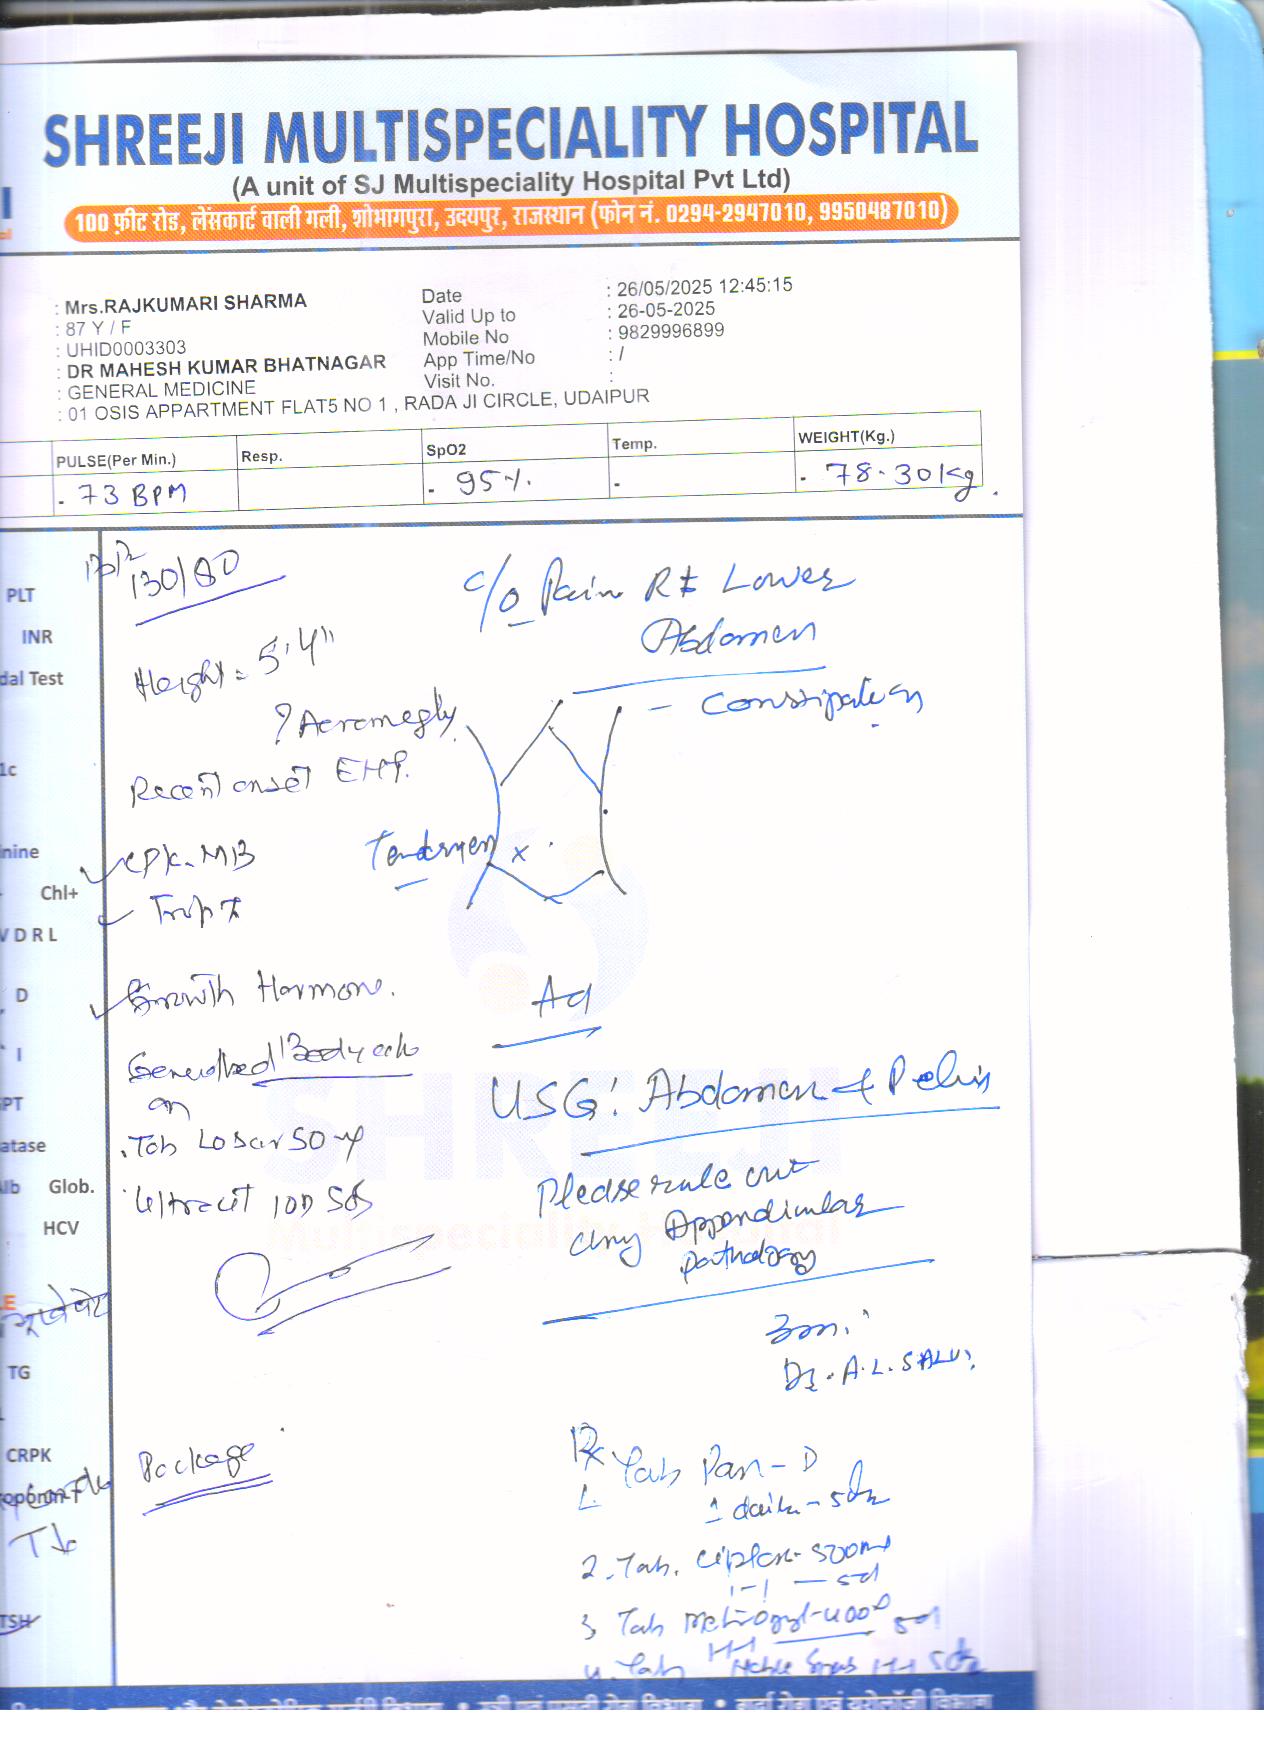 SHREEJI MULTISPECIALITY HOSPITAL
(A unit of SJ Multispeciality Hospital Pvt Ltd)
100 फ़ीट रोड, लेंसकार्ट वाली गली, शोभागपुरा, उदयपुर, राजस्थान (फोन नं. 0294-2947010, 9950487010)
: Mrs.RAJKUMARI SHARMA
: 87 Y / F
: UHID0003303
: DR MAHESH KUMAR BHATNAGAR
: GENERAL MEDICINE
: 01 OSIS APPARTMENT FLAT5 NO 1 , RADA JI CIRCLE, UDAIPUR
Date : 26/05/2025 12:45:15
Valid Up to : 26-05-2025
Mobile No : 9829996899
App Time/No : /
Visit No. :
PULSE(Per Min.) Resp. SpO2 Temp. WEIGHT(Kg.)
- 73 BPM - 95% - - 78.30 Kg.
PLT
INR
dal Test
1c
nine
Chl+
VDRL
D
I
GPT
atase
lb Glob.
HCV
LE
TG
CRPK
TSH
130/80
Height = 5'4"
? Acromegly
Recent onset
CPK-MB
Trop T
Growth Hormone.
Generalised Body ache
on
Tab Losar 50
Ultracet SOS
Package
c/o Pain Rt Lower
Abdomen
- Constipation
x
Ad
USG: Abdomen & Pelvis
Please rule out
any Appendicular
pathology
Dr. A.L.
Rx
1. Tab Pan-D
1 daily - 5d
2. Tab. Ciplox-500mg
1-1 - 5d
3 Tab Metrogyl-400 5d
4. Tab